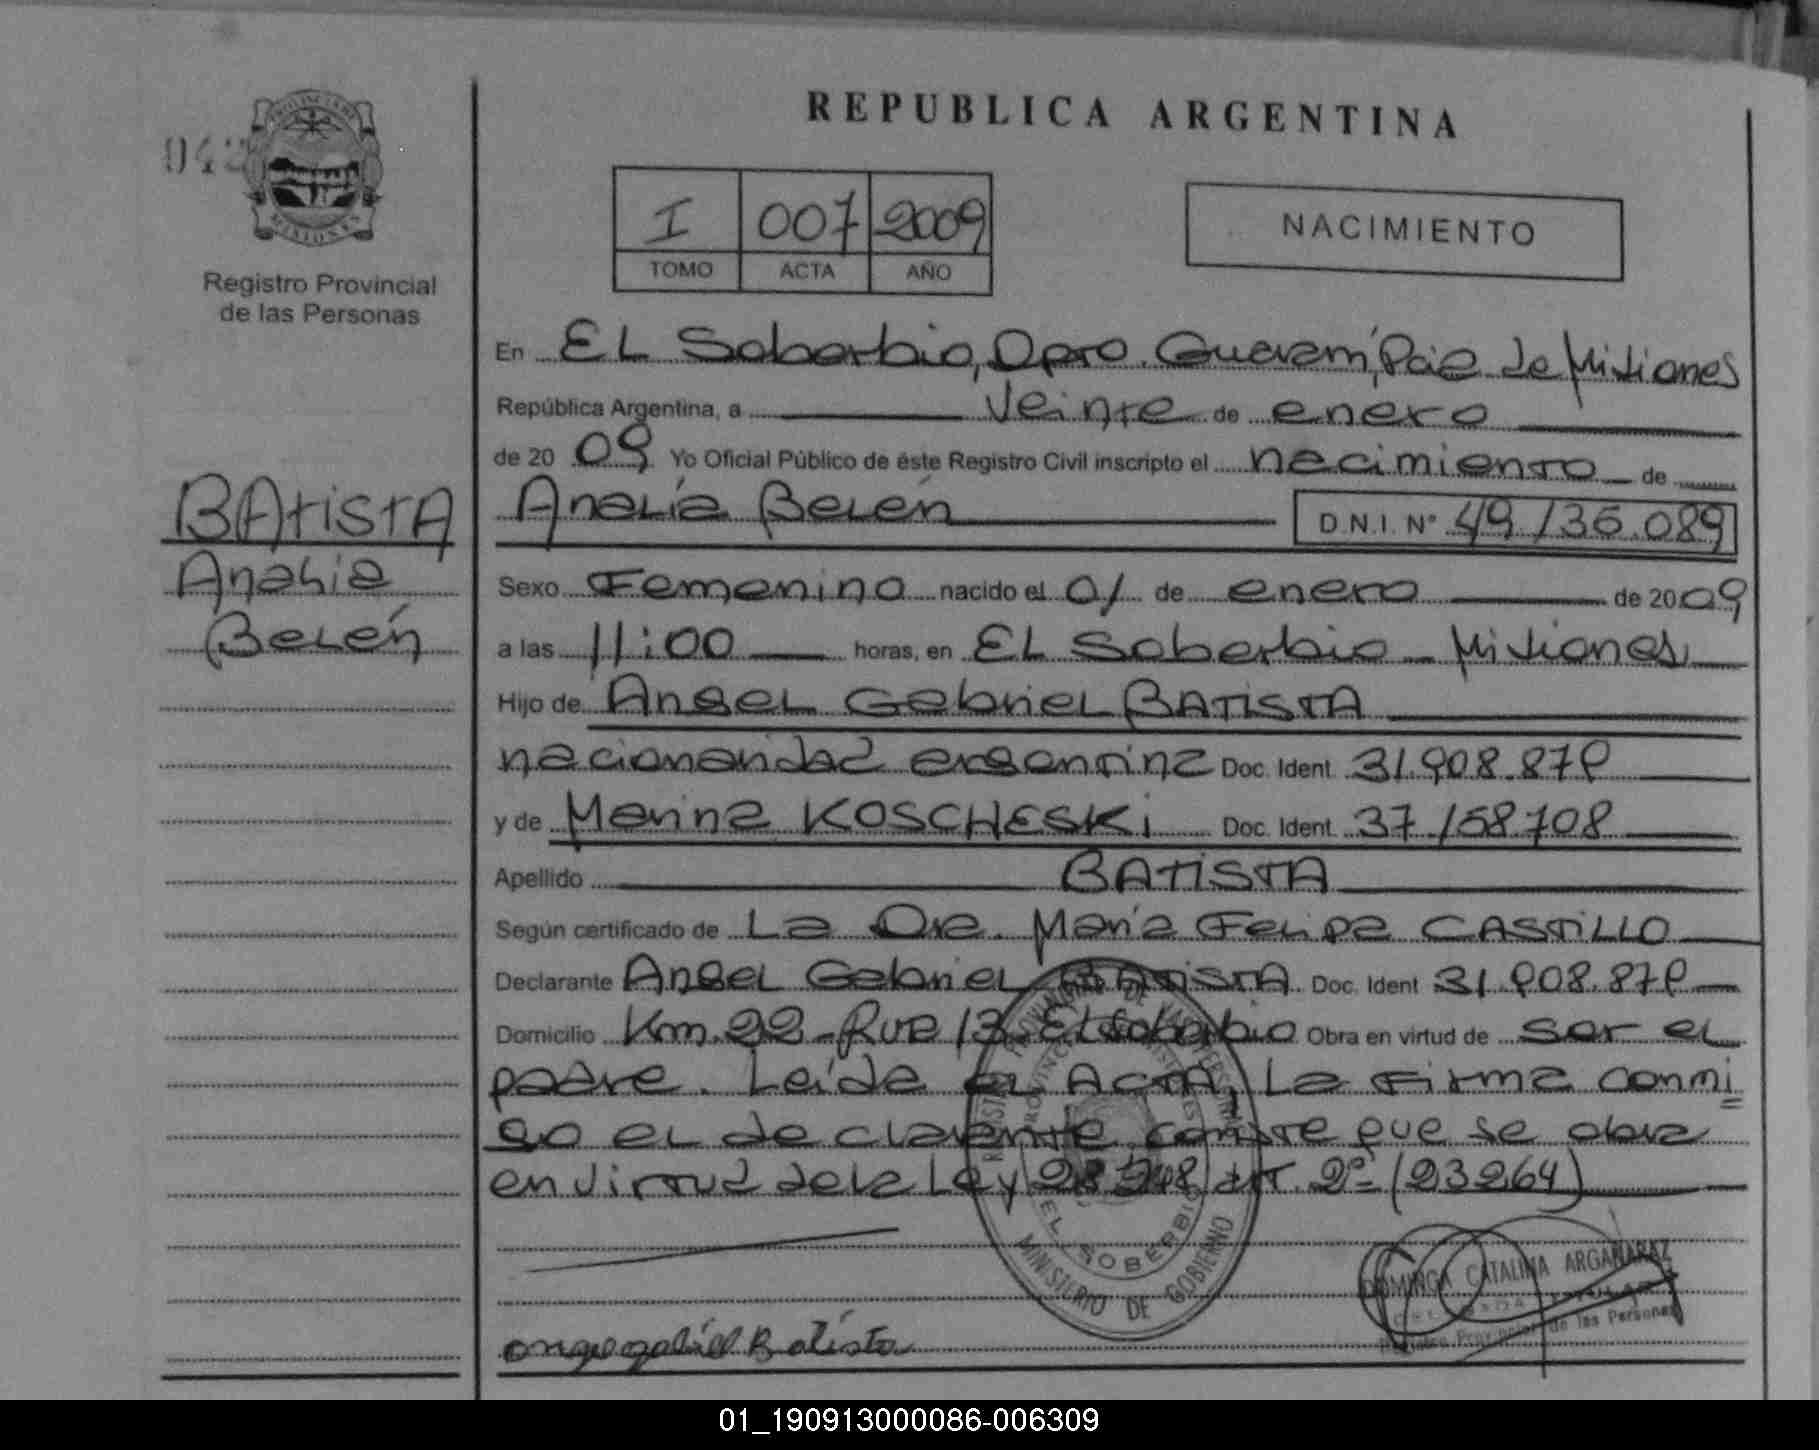 REPUBLICA ARGENTINA
PROVINCIA DE
MISIONES
Registro Provincial
de las Personas
I 007 2009
TOMO ACTA AÑO
NACIMIENTO
En EL Soberbio, Dpto. Guaraní, Pcia de Misiones
República Argentina, a veinte de enero
de 2009 Yo Oficial Público de éste Registro Civil inscripto el nacimiento de
BATISTA
Analia
Belén
Analía Belén D.N.I. Nº 49.136.089
Sexo Femenino nacido el 01 de enero de 2009
a las 11:00 horas, en EL Soberbio - Misiones
Hijo de Angel Gabriel BATISTA
nacionalidad argentina Doc. Ident. 31.908.879
y de Marina KOSCHESKi Doc. Ident. 37.158.708
Apellido BATISTA
Según certificado de La Dra. María Felipa CASTILLO
Declarante Angel Gabriel BATISTA Doc. Ident 31.908.879
Domicilio Km. 22 - Ruta 13 - El Soberbio Obra en virtud de ser el
padre. Leída el ACTA, La firma conmi
go el declarante consta que se obra
en virtud de la Ley Art. 2º (23264)
EL SOBERBIO
MINISTERIO DE GOBIERNO
DOMINGA CATALINA ARGAÑARAZ
Registro Provincial de las Personas
Batista
01_190913000086-006309